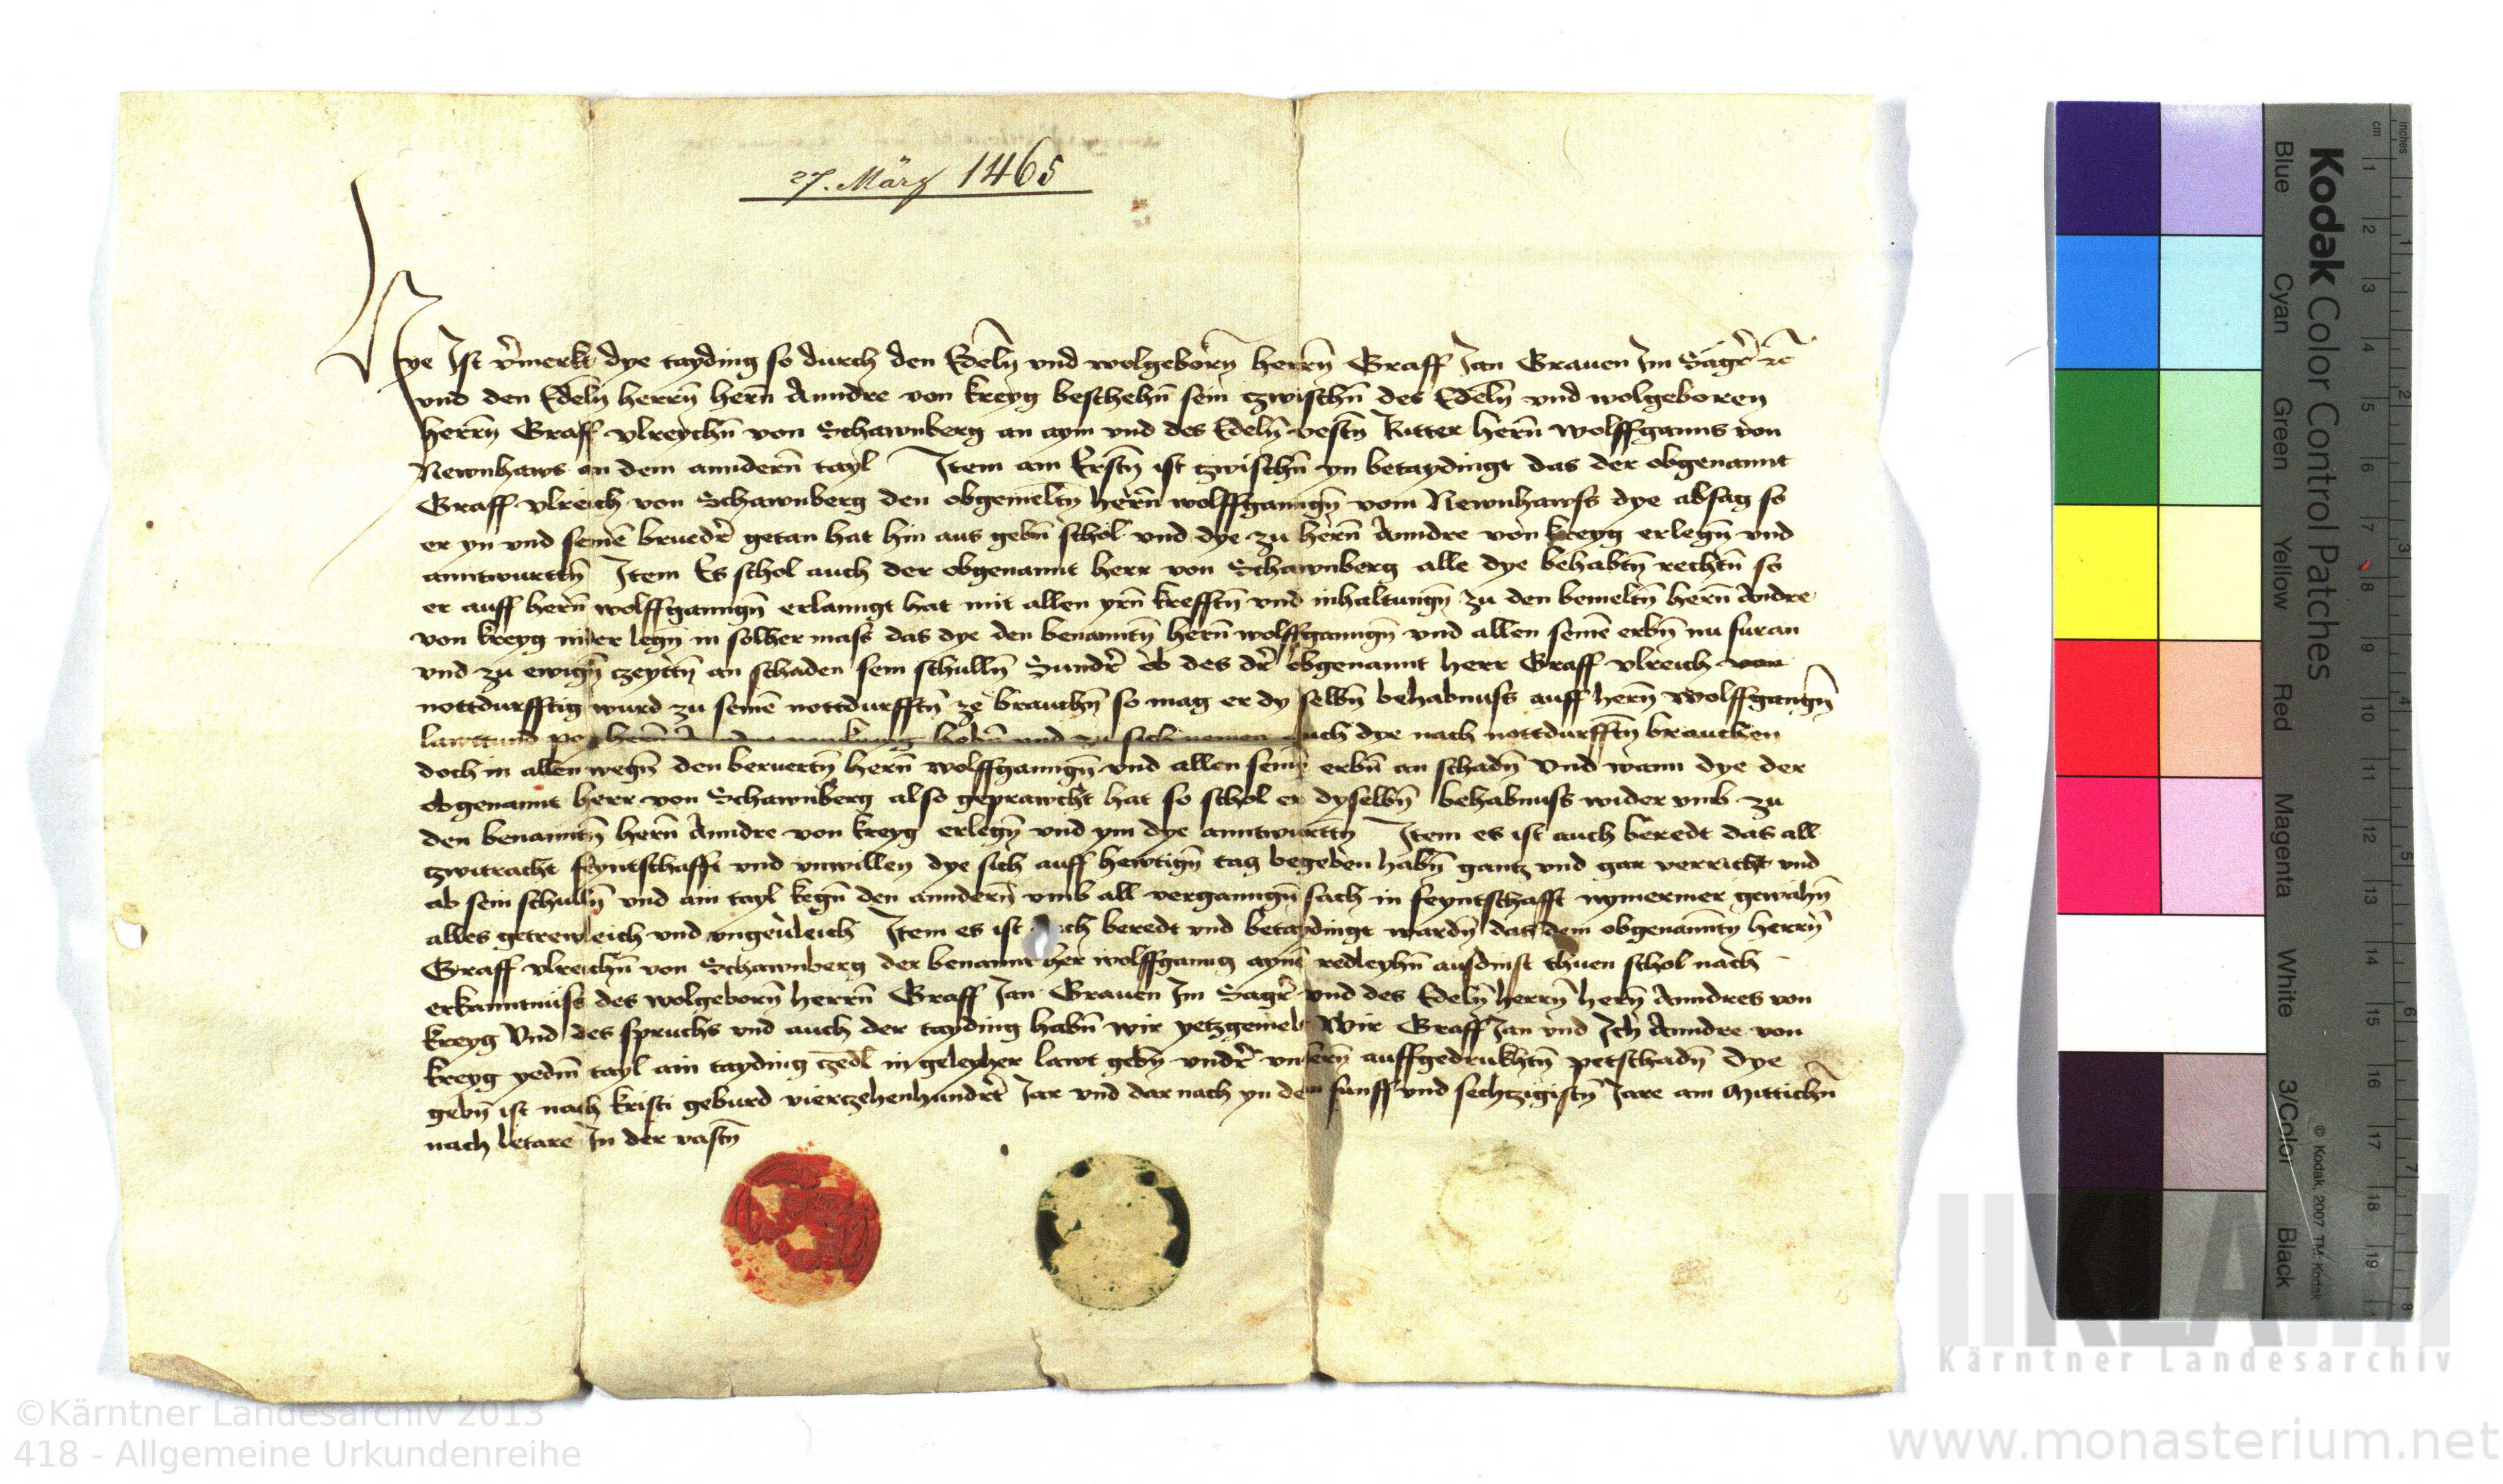 27. März 1465
Hye Ist v̄merkt dye tayding so durch den Edelñ vnd wolgeborñ herrñ Graff Jan Grauen Im Sagr̄ ꝛc̄
vnd den Edelñ herrñ herñ Anndre von kreyg beschehñ sein czwischñ des Edelñ vnd wolgeboren
herrñ Graff vlreychñ von Schawnberg an aym vnd des Edelñ vestñ Ritter herñ wolffganns von
Newnhaws an dem annderñ tayl Item am Erstñ ist tzwischñ yn betaydingt das der obgenannt
Graff vlreich von Schawnberg den obgemeltñ herñ wolffganngñ vom Newnhawss dye absag so
er yn vnd seinē bruedr̄ getan hat hin aus gebñ schol vnd dye zu herñ Anndre von kreyg erlegñ vnd
anntwurttñ Item Es schol auch der obgenannt herr von Schawnberg alle dye behabtñ rechtñ so
er auff herñ wolffganngñ erlanngt hat mit allen yrñ krefftñ vnd inhaltungñ zu den bemeltñ herñ Andre
von kreyg nider legñ in solher mass das dye den benanntñ herñ wolffganngñ vnd allen seinē erbñ nu furan
vnd zu ewigñ czeyttñ an schaden sein schullñ Sundr̄ ob des dr̄ obgenannt herr Graff vlreich von
nottdurfftig wurd zu seinē nottdurfftñ ze brauchñ so mag er dy selbñ behabnuss auff herñ wolffgangñ
lawttund herñ vnd zu sich nemen auch dye nach nottdurfftñ brauchen
doch in allen wegñ den beruertñ herñ wolffganngñ vnd allen seinē erbñ an schadñ Vnd wann dye der
obgenannt herr von Schawnberg also geprawcht hat so schol er dyselbñ behabnuss wider vmb zu
den benanntñ herñ Anndre von kreyg erlegñ vnd ym dye anntwurttñ Item es ist auch beredt das all
tzwitracht feyntschafft vnd vnwillen dye sich auff hewtigñ tag begeben habñ gantz vnd gar verricht vnd
ab sein schullñ vnd ain tayl kegñ den annderñ vmb all verganngñ sach in feyntschafft nymermer gewahñ
alles getrewleich vnd vngeuleich Item es ist auch beredt vnd betaydingt wardñ das dem obgenanntñ herrñ
Graff vlreichñ von Schawnberg der benannt her wolffganng aynē redleyhñ ausdinst thuen schol nach
erkanntnuss des wolgeborñ herrñ Graff Jan Grauen Im Sagr̄ vnd des Edelñ herrñ herñ Anndres von
kreyg Vnd des spruchs vnd auch der tayding habñ wir yetzgemelt Wir Graff Jan vnd Ich Anndre von
kreyg yedm̄ tayl ain tayding czedl in geleyher lawt gebñ vndr̄ vnserñ auffgedrukhtñ petschadñ Dye
gebñ ist nach kristi geburd vierczehenhundr̄t Jar vnd dar nach yn dem funff vnd sechtzigistñ Jare am Mittichñ
nach letare In der vastñ
Kodak Color Control Patches
Blue Cyan Green Yellow Red Magenta White 3/Color Black
© Kodak, 2007 TM: Kodak
cm 1 2 3 4 5 6 7 8 9 10 11 12 13 14 15 16 17 18 19
inches 1 2 3 4 5 6 7 8
KLA
Kärntner Landesarchiv
©Kärntner Landesarchiv 2013
418 - Allgemeine Urkundenreihe
www.monasterium.net